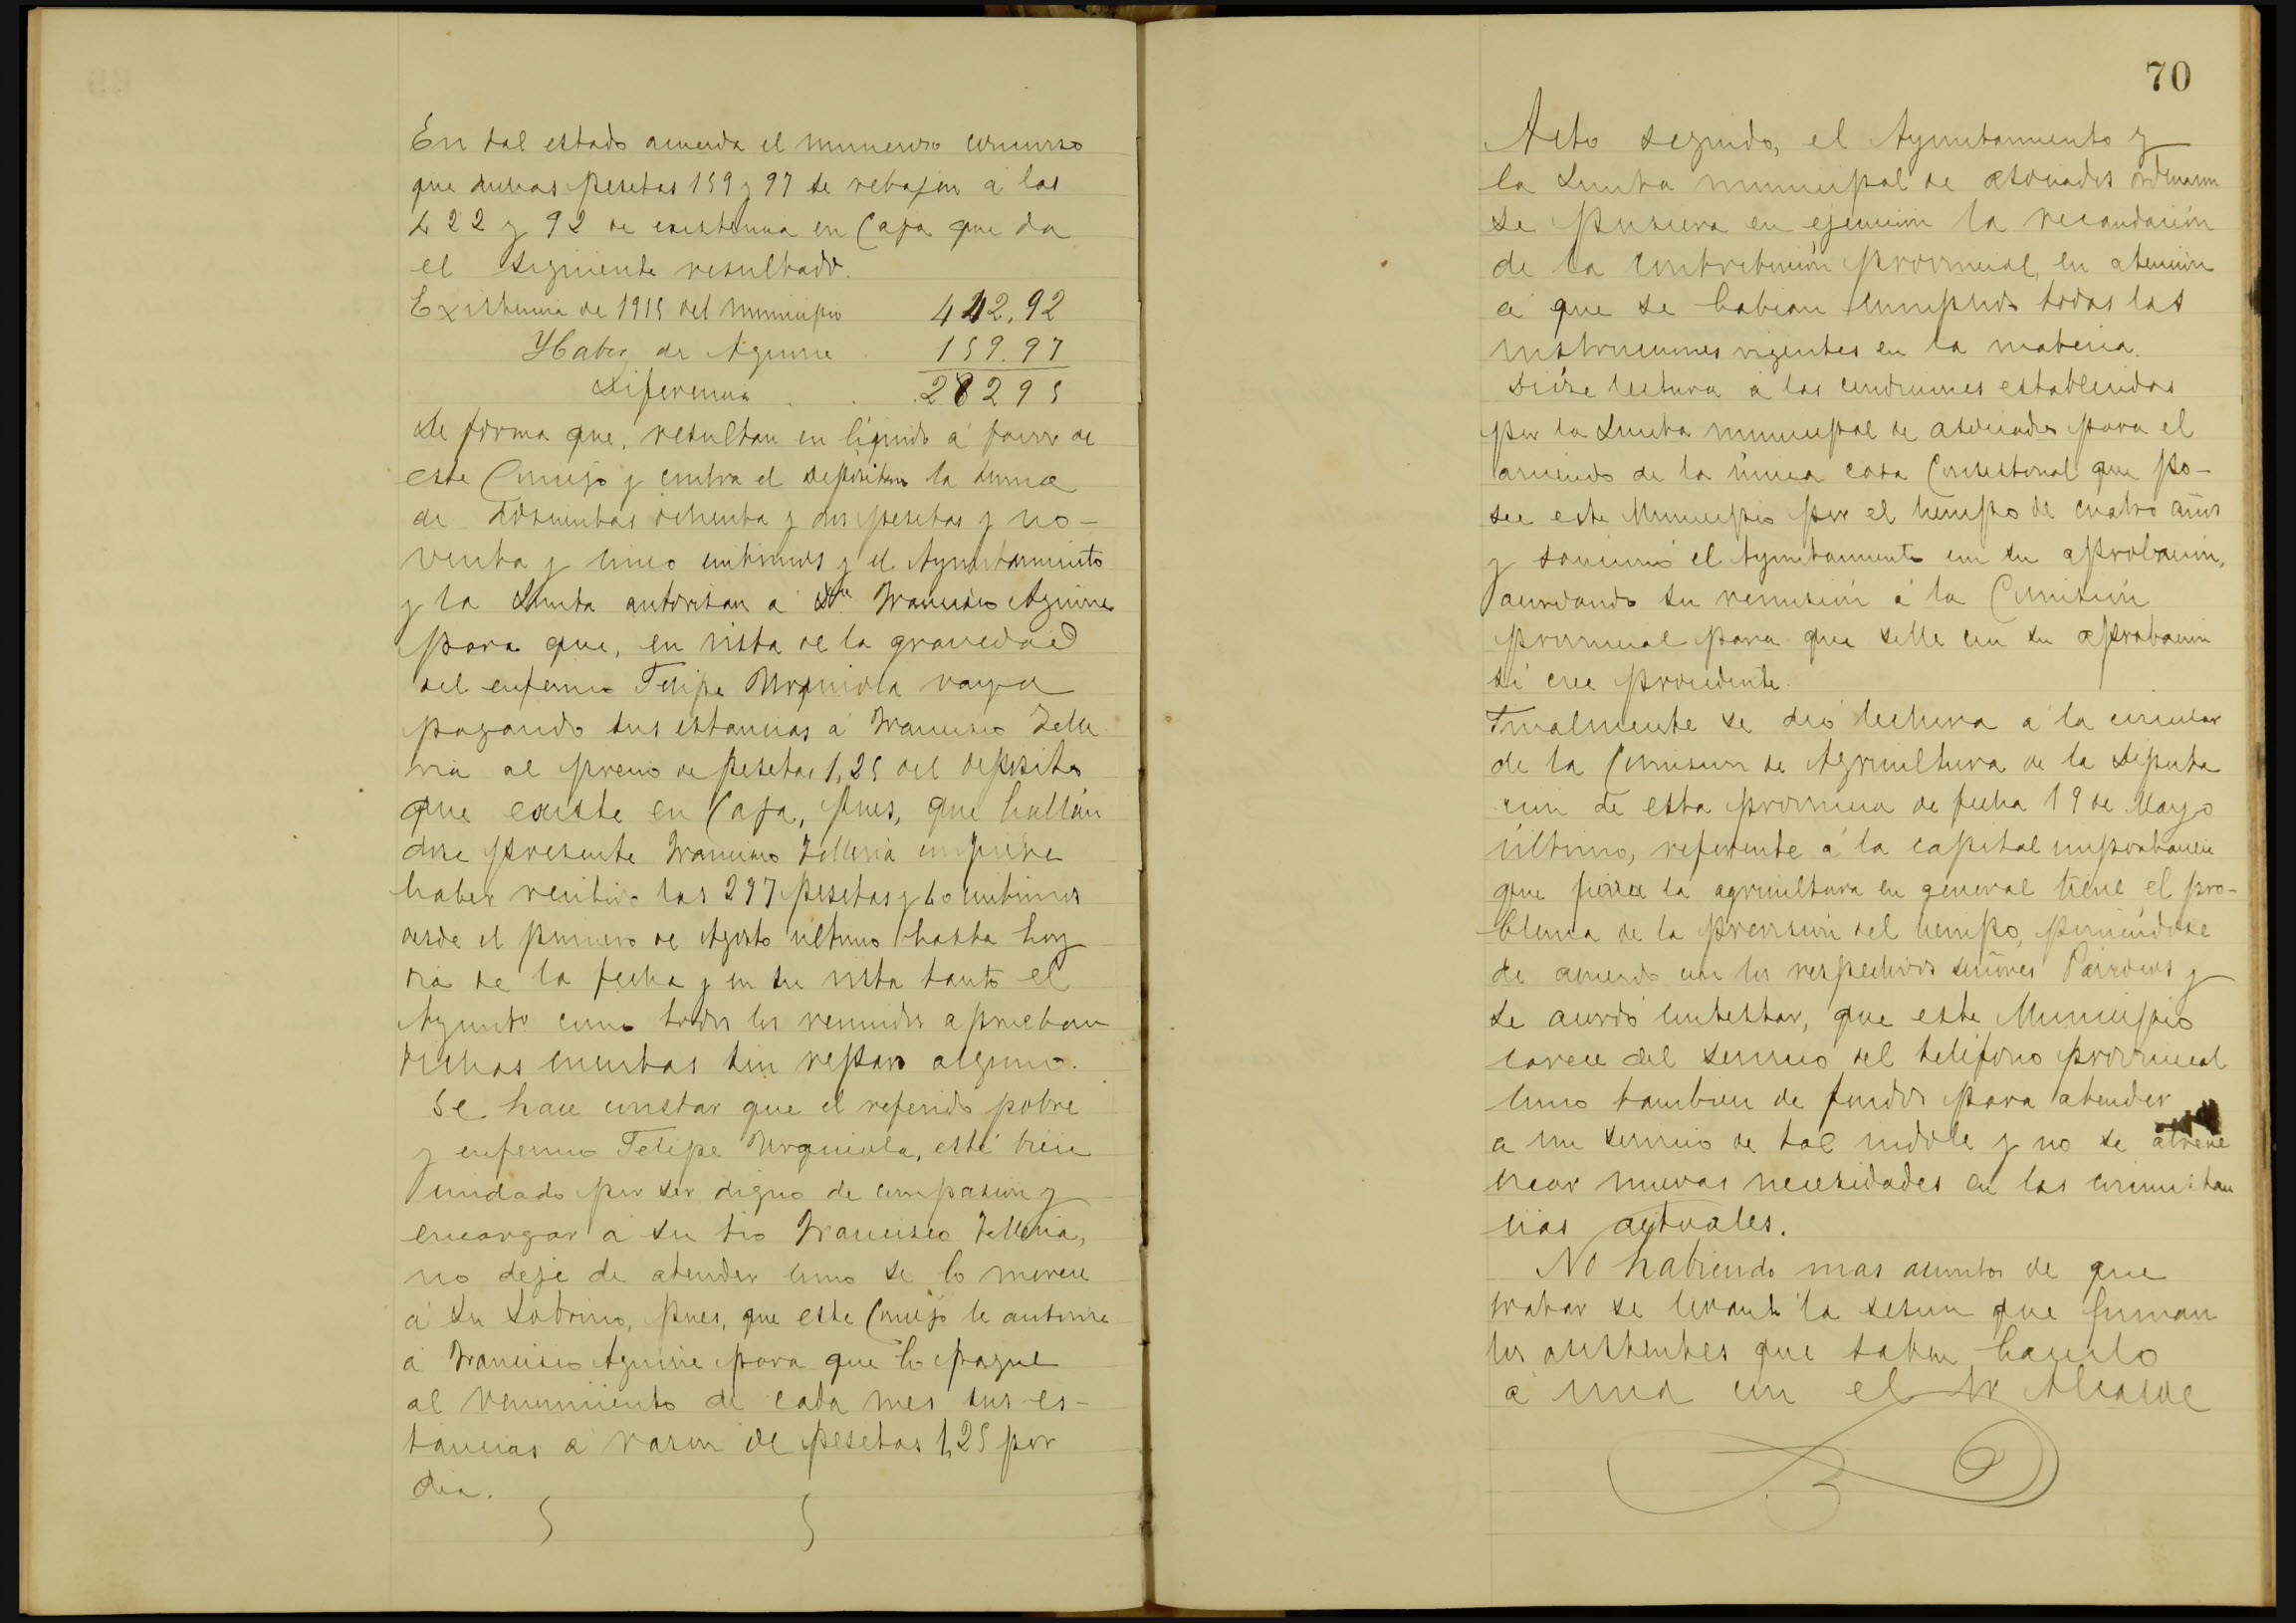 En tal estado acuerda el numeroso concurso
que dichas pesetas 159 y 97 se rebajen á las
422 y 92 de existencia en Caja que da
el siguiente resultado.
Existencia de 1915 del Municipio 442,92
Haber de Aguirre 159.97
Diferencia . . . 28295
De forma que, resultan en líquido á favor de
este Concejo y contra el depositario la suma
de Doscientas ochenta y dos pesetas y no-
venta y cinco centimos y el Ayuntamiento
y la Junta autorizan a Dn Francisco Aguirre
para que, en vista de la gravedad
del enfermo Felipe Urquiola vaya
pagando sus estancias á Francisco Telle
ria al precio de pesetas 1,25 del deposito
que existe en Caja, pues, que hallán
dose presente Francisco Telleria
haber recibido las 297 pesetas y 60 centimos
desde el primero de Agosto ultimo hasta hoy
dia de la fecha y en su vista tanto el
Ayunto como todos los reunidos aprueban
dichas cuentas sin reparo alguno.
Se hace constar que el referido pobre
y enfermo Felipe Urquiola, esté bien
cuidado por ser digno de compasion y
encargar á su tio Francisco Telleria,
no deje de atender como se lo merece
á su sobrino, pues, que este Concejo le autorice
á Francisco Aguirre para que lo pague
al vencimiento de cada mes sus es-
tancias a razon de pesetas 1,25 por
dia.
70
Acto seguido, el Ayuntamiento y
la Junta municipal de asociados ordenaron
se pusiera en ejecución la recaudación
de la contribución provincial, en atención
á que se habian cumplido todas las
instrucciones vigentes en la materia.
Dióse lectura á las condiciones establecidas
por la Junta municipal de asociados para el
arriendo de la única casa Consistorial que po-
see este Municipio por el tiempo de cuatro años
y sancionó el Ayuntamiento con su aprobación,
acordando su remisión á la Comisión
provincial para que selle con su aprobacion
si cree procedente.
Finalmente se dió lectura á la circular
de la Comision de Agricultura de la Diputa
cion de esta provincia de fecha 19 de Mayo
último, referente á la capital importancia
que la agricultura en general tiene el pro-
blema de la previsión del tiempo, poniéndose
de acuerdo con los respectivos señores Párrocos y
se acordó contestar, que este Municipio
carece del servicio del teléfono provincial
como tambien de fondos para atender
a un servicio de tal indole y no se atreve
crear nuevas necesidades en las circunstan
cias actuales.
No habiendo mas asuntos de que
tratar se levantó la sesion que firman
los asistentes que saben hacerlo
á una con el Sr Alcalde